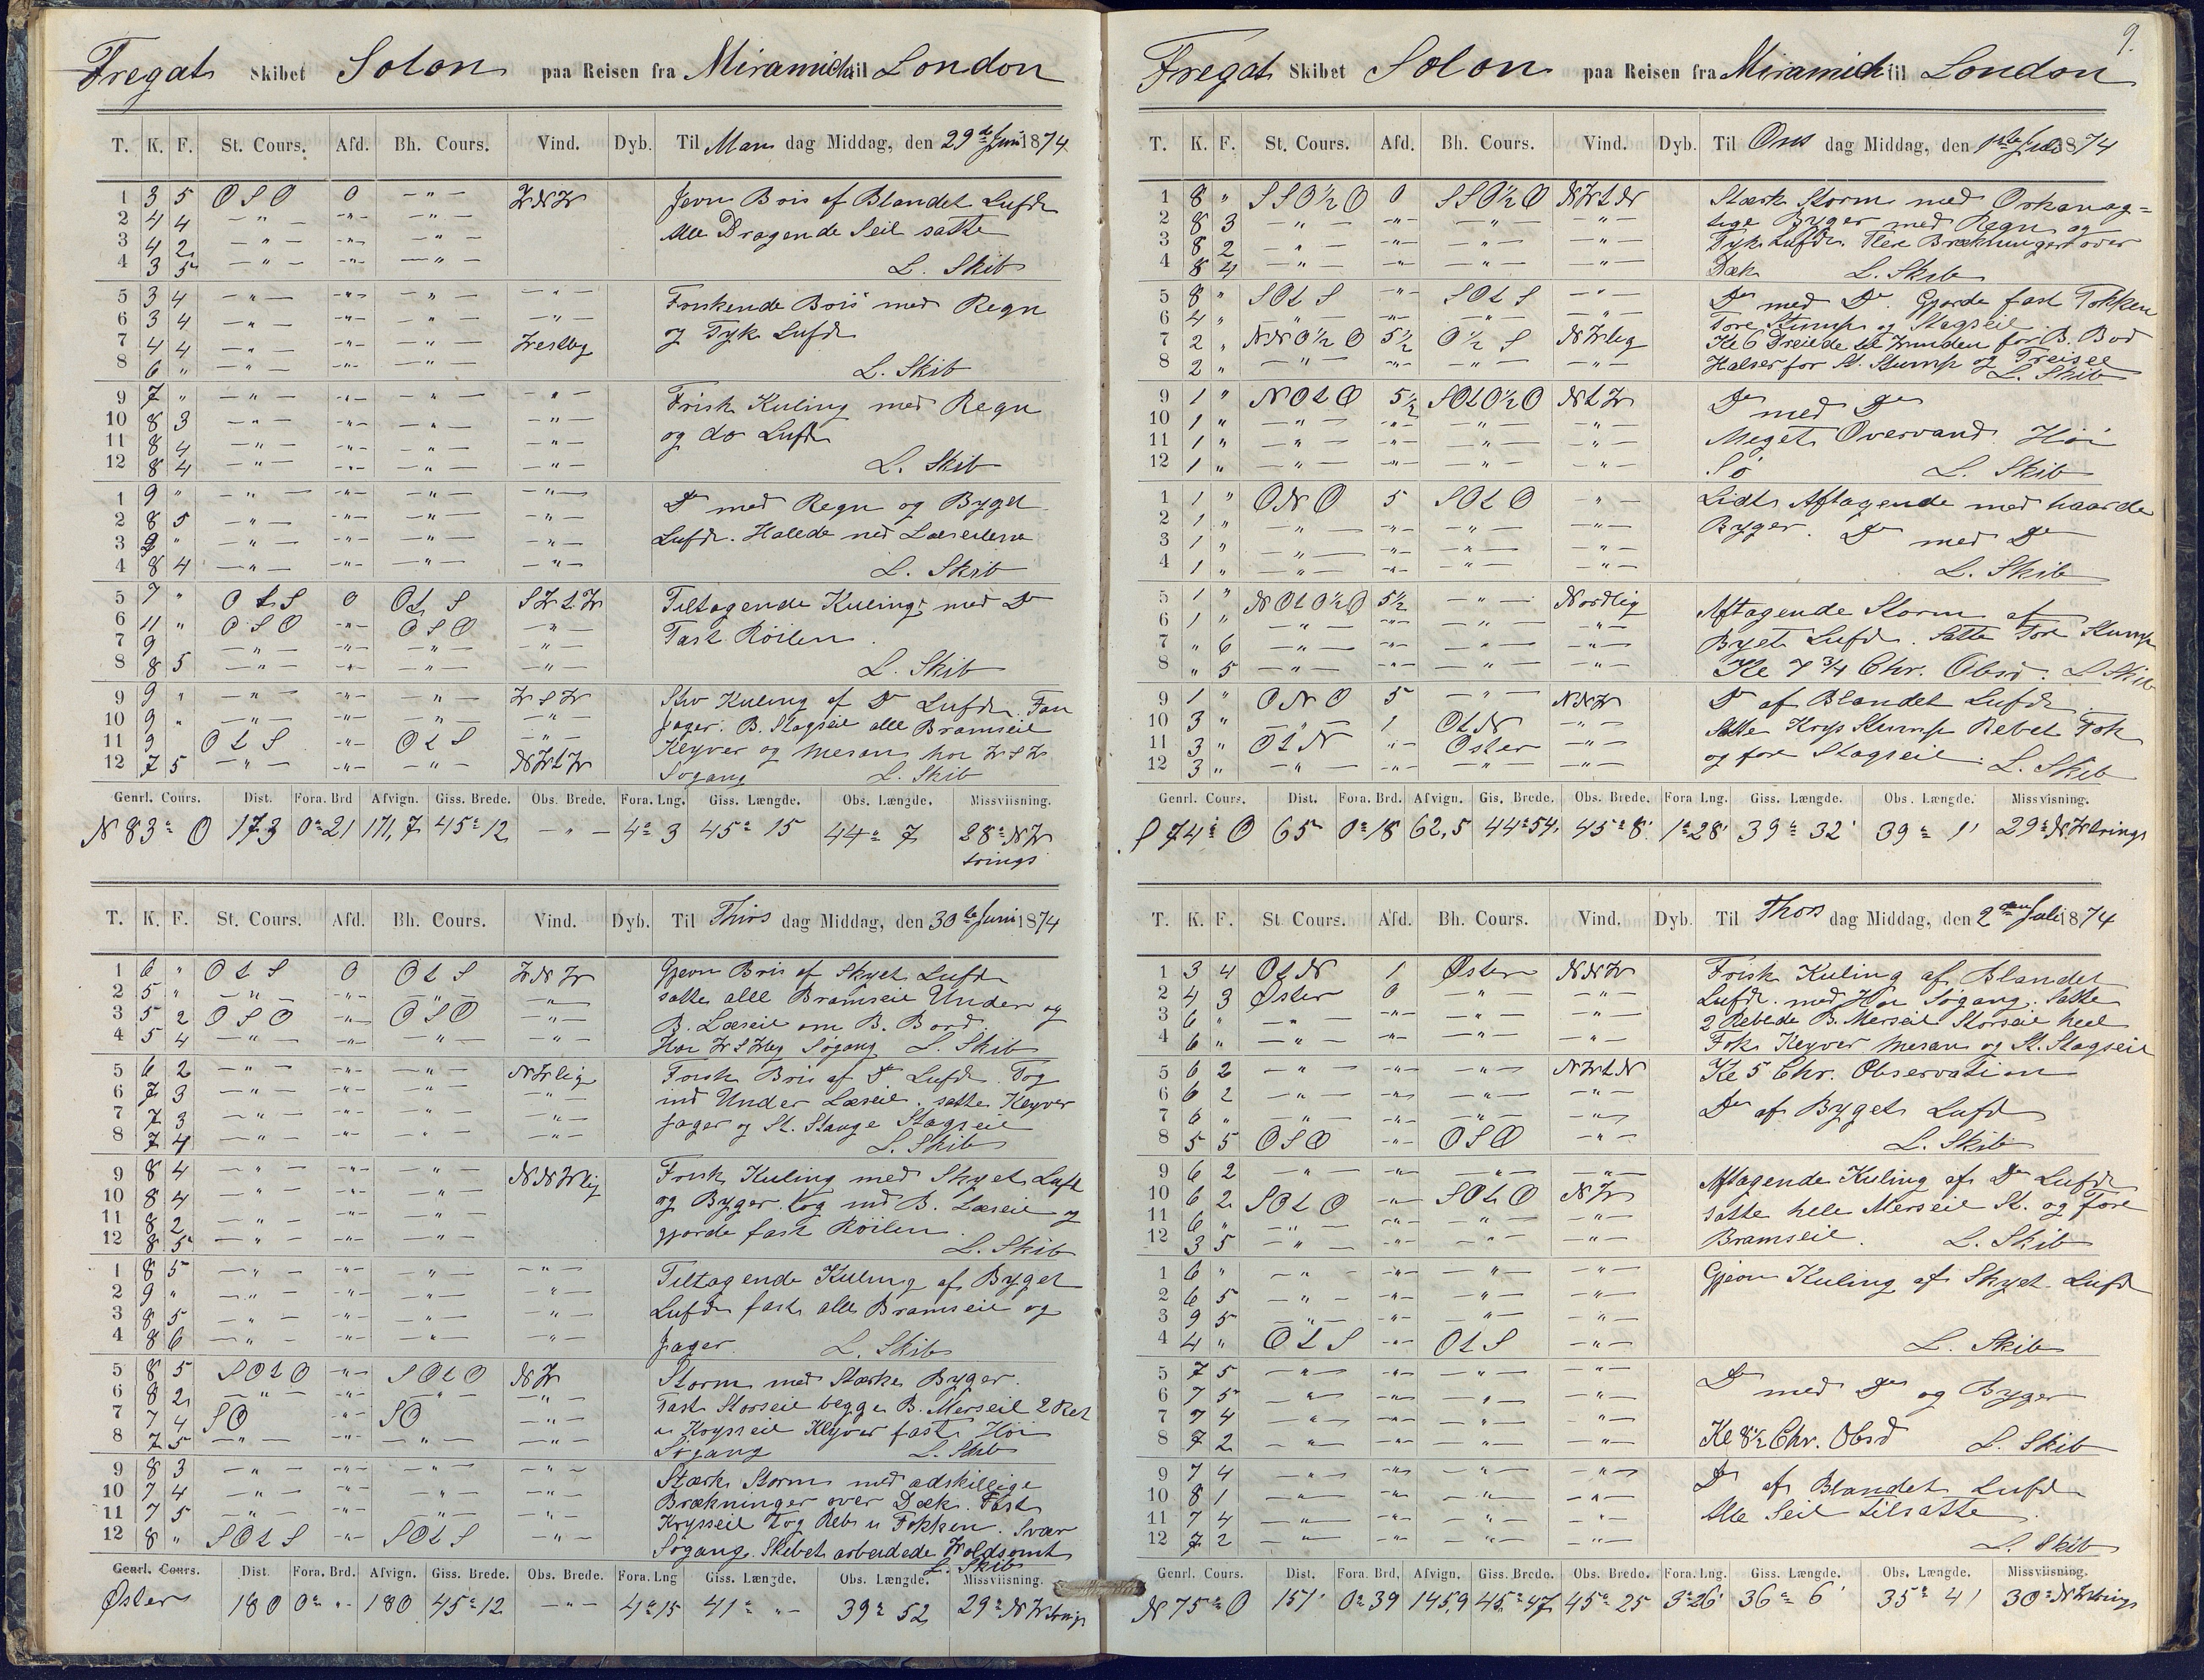 Fregat Skibet Solon paa Reisen fra Miramichi til London
T. K. F. St. Cours. Afd. Bh. Cours. Vind. Dyb. Til Man dag Middag, den 29de Juni 1874
1 3 5 OSO 0 -"- VNV Jevn Bris af Blandet Luft
2 4 4 -"- -"- -"- Alle Dragende Seil satte
3 4 2 -"- -"- -"-
4 3 5 -"- -"- -"- L. Skib
5 3 4 -"- -"- -"- -"- Friskende Bris med Regn
6 3 4 -"- -"- -"- -"- og Tyk Luft
7 4 4 -"- -"- -"- Vestlig
8 6 " -"- -"- -"- L. Skib
9 7 " -"- -"- -"- -"- Frisk Kuling med Regn
10 8 3 -"- -"- -"- -"- og do Luft
11 8 4 -"- -"- -"- -"-
12 8 4 -"- -"- -"- -"- L. Skib
1 9 " -"- -"- -"- -"- Do med Regn og Byget
2 8 5 -"- -"- -"- -"- Luft. Halede ned Læseilene
3 9 " -"- -"- -"- -"-
4 8 4 -"- -"- -"- -"- L. Skib
5 7 " OtS 0 OtS SVtV Tiltagende Kuling med Do
6 11 " OSO -"- OSO -"- Fast Röilen.
7 9 " -"- -"- -"- -"-
8 8 5 -"- -"- -"- -"- L. Skib
9 9 " -"- -"- -"- VSV Stiv Kuling af Do Luft. Fast
10 9 " -"- -"- -"- -"- Jager. B. Stagseil alle Bramseil
11 9 OtS -"- OtS -"- Klyver og Mesan, hoi VSV
12 7 5 -"- -"- -"- NVtV Søgang L. Skib
Genrl. Cours. Dist. Fora. Brd Afvign. Giss. Brede. Obs. Brede. Fora. Lng. Giss. Længde. Obs. Længde. Missviisning.
N 83° O 173 0° 21 171,7 45° 12 -"- 4° 3 45° 15 44° 7 28° NV
trings
T. K. F. St. Cours. Afd. Bh. Cours. Vind. Dyb. Til Thirs dag Middag, den 30te Juni 1874
1 6 " OtS 0 OtS VNV Gjevn Bris af Skyet Luft
2 5 " -"- -"- -"- -"- satte alle Bramseil Under og
3 5 2 OSO -"- OSO -"- B. Læseil om B. Bord.
4 5 4 -"- -"- -"- -"- Hoi VSVlig Søgang L. Skib
5 6 2 -"- -"- -"- NVlig Frisk Bris af Do Luft. Tog
6 7 3 -"- -"- -"- -"- ind Under Læseil. satte Klyver
7 7 3 -"- -"- -"- -"- Jager og St. Stange Stagseil
8 7 4 -"- -"- -"- -"- L. Skib
9 8 4 -"- -"- -"- NNVlig Frisk Kuling med Skyet Luft
10 8 4 -"- -"- -"- og Byger. tog ind B. Læseil og
11 8 2 -"- -"- -"- gjorde fast Röilen
12 8 5 -"- -"- -"- L. Skib
1 8 5 -"- -"- -"- -"- Tiltagende Kuling af Byget
2 9 " -"- -"- -"- -"- Luft fast alle Bramseil og
3 8 5 -"- -"- -"- -"-
4 8 6 -"- -"- -"- -"- Jager. L. Skib
5 8 5 SOtO -"- SOtO NV Storm med Stærke Byger.
6 8 2 -"- -"- -"- -"- Fast Storseil begge B. Merseil 2 Reb
7 7 4 SO -"- SO -"- i Krysseil Klyver fast Høi
8 7 5 -"- -"- -"- -"- Søgang L. Skib
9 8 3 -"- -"- -"- -"- Stærk Storm med adskillige
10 7 4 -"- -"- -"- -"- Brækninger over Dæk. Fast
11 7 5 -"- -"- -"- -"- Krysseil tog Reb i Fokken. Svær
12 8 " SOtS -"- SOtS -"- Søgang. Skibet arbeidede Voldsomt
L. Skib
Genrl. Cours. Dist. Fora. Brd. Afvign. Giss. Brede. Obs. Brede. Fora. Lng Giss. Længde. Obs. Længde. Missviisning.
Øster 180 0° " 180 45° 12 -"- 4° 15 41° " 39° 52 29° NVtrings
9.
Fregat Skibet Solon paa Reisen fra Miramichi til London
T. K. F. St. Cours. Afd. Bh. Cours. Vind. Dyb. Til Ons dag Middag, den 1ste Juli 1874
1 8 " SSO½O 0 SSO½O NVtN Stærk Storm med Orkanag=
2 8 3 -"- -"- -"- -"- tige Byger med Regn og
3 8 2 -"- -"- -"- -"- Tyk Luft. Flere Brækninger over
4 8 4 -"- -"- -"- -"- Dæk L. Skib
5 8 " SOtS -"- SOtS -"- Do med Do. Gjorde fast Fokken
6 4 " -"- -"- -"- -"- Fore Stump og Stagseil.
7 2 " NNO½O 5½ O½S NVlig Kl 6 Dreiede til Vinden for B. Bord
8 2 " -"- -"- -"- -"- Halser for St. Stump og Treiseil
L. Skib
9 1 " NOtO 5½ SOtO½O NtV Do med Do
10 1 " -"- -"- -"- -"- Meget Overvand. Høi
11 1 " -"- -"- -"- -"-
12 1 " -"- -"- -"- -"- Sø L. Skib
1 1 " ONO 5 SOtO -"- Lidt Aftagende med haarde
2 1 " -"- -"- -"- -"- Byger. Do med Do
3 1 " -"- -"- -"- -"-
4 1 " -"- -"- -"- -"- L. Skib
5 1 " NOtO½O 5½ -"- Nordlig Aftagende Storm af
6 1 " -"- -"- -"- -"- Byget Luft. Satte Fore Stump
7 " 6 -"- -"- -"- -"-
8 " 5 -"- -"- -"- -"- Kl 7¾ Chr. Obsd. L. Skib
9 1 " ONO 5 -"- NNV Do af Blandet Luft.
10 3 " -"- 1 OtN -"- Satte Krys Stump Rebet Fok
11 3 " OtN -"- Øster -"- og fore Stagseil.
12 3 " -"- -"- -"- -"- L. Skib
Genrl. Cours. Dist. Fora. Brd. Afvign. Gis. Brede. Obs. Brede. Fora Lng. Giss. Længde. Obs. Længde. Missvisning.
S 74° O 65 0° 18 62,5 44° 54' 45° 8' 1° 28' 39° 32' 39° 1' 29° NVtrings
T. K. F. St Cours. Afd. Bh. Cours. Vind. Dyb. Til Thors dag Middag, den 2den Juli 1874
1 3 4 OtN 1 Øster NNV Frisk Kuling af Blandet
2 4 3 Øster 0 -"- -"- Luft. med Hoi Søgang. Satte
3 6 " -"- -"- -"- -"- 2 Rebede B. Merseil Storseil heel
4 6 " -"- -"- -"- -"- Fok Klyver Mesan og St. Stagseil
5 6 2 -"- -"- -"- NVtN Kl 5 Chr. Observation
6 6 2 -"- -"- -"- -"-
7 6 " -"- -"- -"- -"- Do af Byget Luft
8 5 5 OSO -"- OSO -"- L. Skib
9 6 2 -"- -"- -"- -"- Aftagende Kuling af Do Luft
10 6 2 SOtO -"- SOtO NV satte hele Merseil St. og Fore
11 6 " -"- -"- -"- -"-
12 3 5 -"- -"- -"- -"- Bramseil. L. Skib
1 6 " -"- -"- -"- -"- Gjevn Kuling af Skyet Luft
2 6 5 -"- -"- -"- -"-
3 9 5 -"- -"- -"- -"-
4 4 " OtS -"- OtS -"- L. Skib
5 7 5 -"- -"- -"- -"- Do med Do og Byger
6 7 5 -"- -"- -"- -"-
7 7 4 -"- -"- -"- -"-
8 7 2 -"- -"- -"- -"- Kl 8½ Chr. Obsd L. Skib
9 7 4 -"- -"- -"- -"- Do af Blandet Luft
10 8 1 -"- -"- -"- -"- Alle Seil tilsatte
11 7 4 -"- -"- -"- -"-
12 7 2 -"- -"- -"- -"- L. Skib
Genrl. Cours. Dist. Fora. Brd, Afvign. Giss. Brede. Obs. Brede. Fora. Lng. Giss. Længde. Obs. Længde. Missviisning.
N 75° O 151' 0° 39 145,9 45° 47 45° 25 3° 26' 36° 6' 35° 41 30° NVtrings